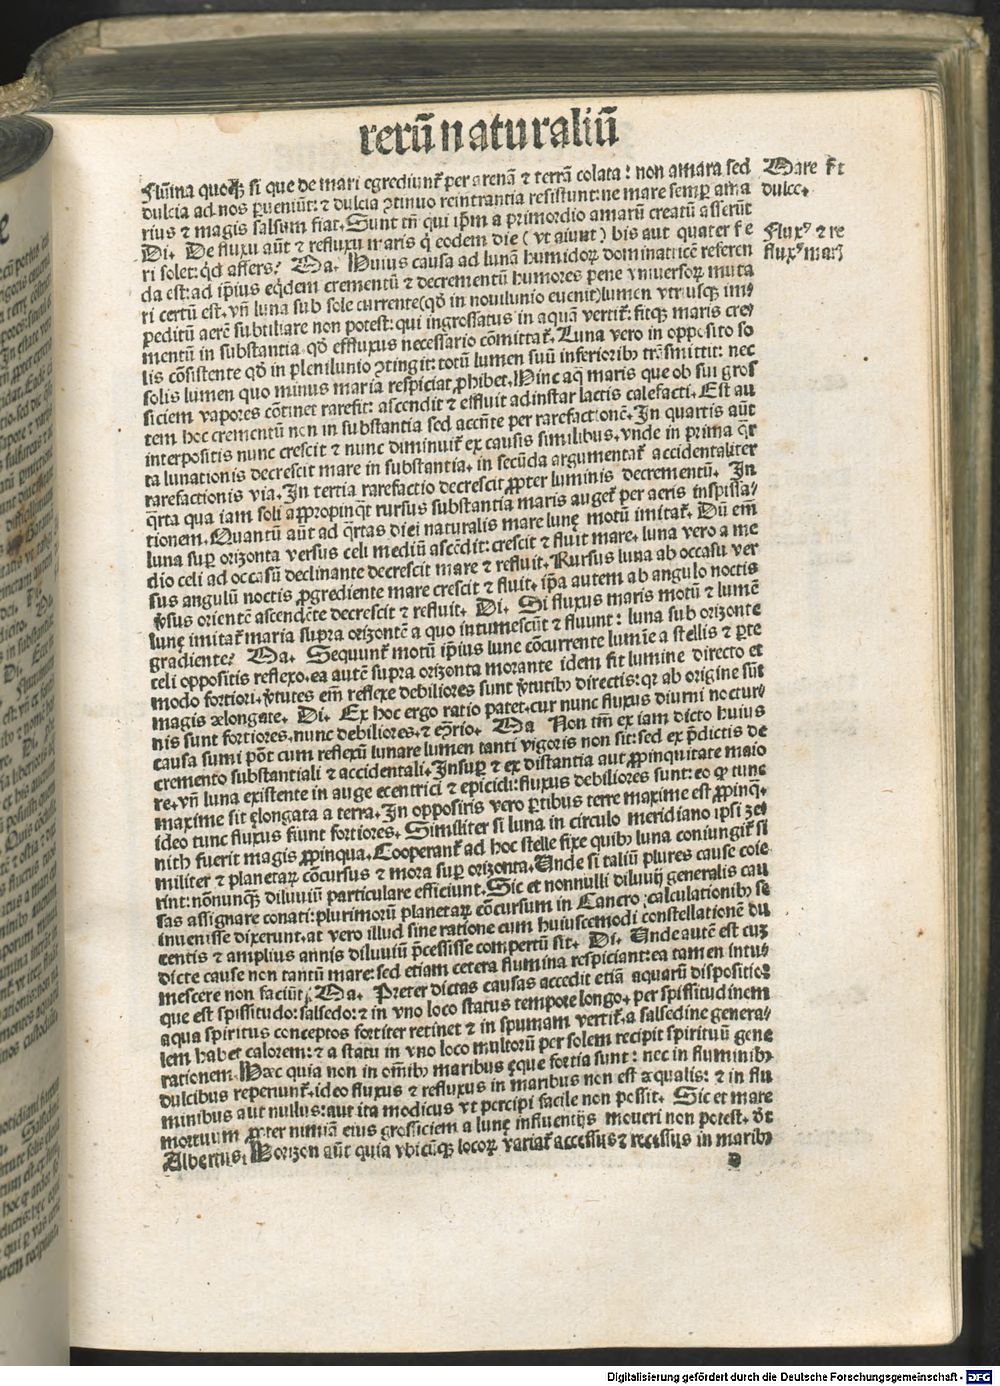 rerū naturaliū
Flūina quoqꝫ si que de mari egrediunt᷑ per arenā ⁊ terrā colata: non amara sed
dulcia ad nos ꝑueniūt: ⁊ dulcia ꝯtinuo reintrantia resistunt: ne mare semꝑ ama
rius ⁊ magis salsum fiat. Sunt tn̄ qui ip̄m a primordio amarū creatū asserūt
Di. De fluxu aūt ⁊ refluxu maris q̇ eodem die (vt aiunt) bis aut quater
ri solet: qd affers? Ma. Huius causa ad lunā humidoꝝ dominatricē referen
da est: ad ip̄ius eqdem crementū ⁊ decrementū humores pene vniuersoꝝ muta
ri certū est. vn̄ luna sub sole currente (qd in nouilunio euenit) lumen vtriusqꝫ im⸗
peditū aerē subtiliare non potest: qui ingrossatus in aquā vertit᷑: fitqꝫ maris cre⸗
mentū in substantia qd effluxus necessario comittat᷑. Luna vero in opposito so
lis cōsistente qd in plenilunio ꝯtingit: totū lumen suū inferioribꝫ trāsmittit: nec
solis lumen quo minus maria respiciat ꝓhibet. Hinc aq̄ maris que ob sui gros
siciem vapores cōtinet rarefit: ascendit ⁊ effluit ad instar lactis calefacti. Est au
tem hoc crementū non in substantia sed accn̄te per rarefactionē. In quartis aūt
interpositis nunc crescit ⁊ nunc diminuit᷑ ex causis similibus. vnde in prima q̄r
ta lunationis decrescit mare in substantia. in secūda argumentat᷑ accidentaliter
rarefactionis via. In tertia rarefactio decrescit ꝓpter luminis decrementū. In
q̄rta qua iam soli appropinq̄t rursus substantia maris auget᷑ per aeris inspissa⸗
tionem. Quantū aūt ad q̄rtas diei naturalis mare lunę motū imitat᷑. Dū em̄
luna suꝑ orizonta versus celi mediū ascēdit: crescit ⁊ fluit mare. luna vero a me
dio celi ad occasū declinante decrescit mare ⁊ refluit. Rursus luna ab occasu ver
sus angulū noctis ꝓgrediente mare crescit ⁊ fluit. ip̄a autem ab angulo noctis
ꝟsus orientē ascendēte decrescit ⁊ refluit. Di. Si fluxus maris motū ⁊ lumē
lunę imitat᷑ maria supra orizontē a quo intumescūt ⁊ fluunt: luna sub orizonte
gradiente? Ma. Sequunt᷑ motū ip̄ius lune cōcurrente lumīe a stellis ⁊ ꝑte
celi oppositis reflexo. ea autē supra orizonta morante idem fit lumine directo et
modo fortiori. ꝟtutes em̄ reflexe debiliores sunt ꝟtutibꝫ directis: qr ab origine sūt
magis elongate. Di. Ex hoc ergo ratio patet. cur nunc fluxus diurni noctur⸗
nis sunt fortiores. nunc debiliores. ⁊ eꝯ̄rio. Ma Non tm̄ ex iam dicto huius
causa sumi pōt cum reflexū lunare lumen tanti vigoris non sit: sed ex p̄dictis de
cremento substantiali ⁊ accidentali. Insuꝑ ⁊ ex distantia aut ꝓpinquitate maio
re. vn̄ luna existente in auge ecentrici ⁊ epicicli: fluxus debiliores sunt: eo ꝙ tunc
maxime sit elongata a terra. In oppositis vero ꝑtibus terre maxime est ꝓpinq̄.
ideo tunc fluxus fiunt fortiores. Similiter si luna in circulo meridiano ipsi ze⸗
nith fuerit magis ꝓpinqua. Cooperant᷑ ad hoc stelle fixe quibꝫ luna coniungit᷑ si
militer ⁊ planetaꝝ cōcursus ⁊ mora suꝑ orizonta. Unde si taliū plures cause coie
rint: nōnunqꝫ diluuiū particulare efficiunt. Sic et nonnulli diluuij generalis cau
sas assignare conati: plurimorū planetaꝝ cōcursum in Cancro calculationibꝫ se
inuenisse dixerunt. at vero illud sine ratione cum huiuscemodi constellationē du
centis ⁊ amplius annis diluuiū p̄cessisse compertū sit. Di. Unde autē est cuꝫ
dicte cause non tantū mare: sed etiam cetera flumina respiciant: ea tamen intu⸗
mescere non faciūt? Ma. Preter dictas causas accedit etiā aquarū dispositio:
que est spissitudo: salsedo: ⁊ in vno loco status tempore longo. per spissitudinem
aqua spiritus conceptos fortiter retinet ⁊ in spumam vertit᷑. a salsedine genera⸗
lem habet calorem: ⁊ a statu in vno loco multorū per solem recipit spirituū gene
rationem. Hęc quia non in om̄ibꝫ maribus ęque fortia sunt: nec in fluminibꝫ
dulcibus reperiunt᷑. ideo fluxus ⁊ refluxus in maribus non est ęqualis: ⁊ in flu
minibus aut nullus: aut ita modicus vt percipi facile non possit. Sic et mare
mortuum ꝓpter nimiā eius grossiciem a lunę influentijs moueri non potest. vt
Albertus. Horizon aūt quia vbicūqꝫ locoꝝ variat᷑ accessus ⁊ recessus in maribꝫ
D
Mare
dulce.
Fluxꝰ ⁊ re
fluxꝰ marꝭ
Digitalisierung gefördert durch die Deutsche Forschungsgemeinschaft - DFG